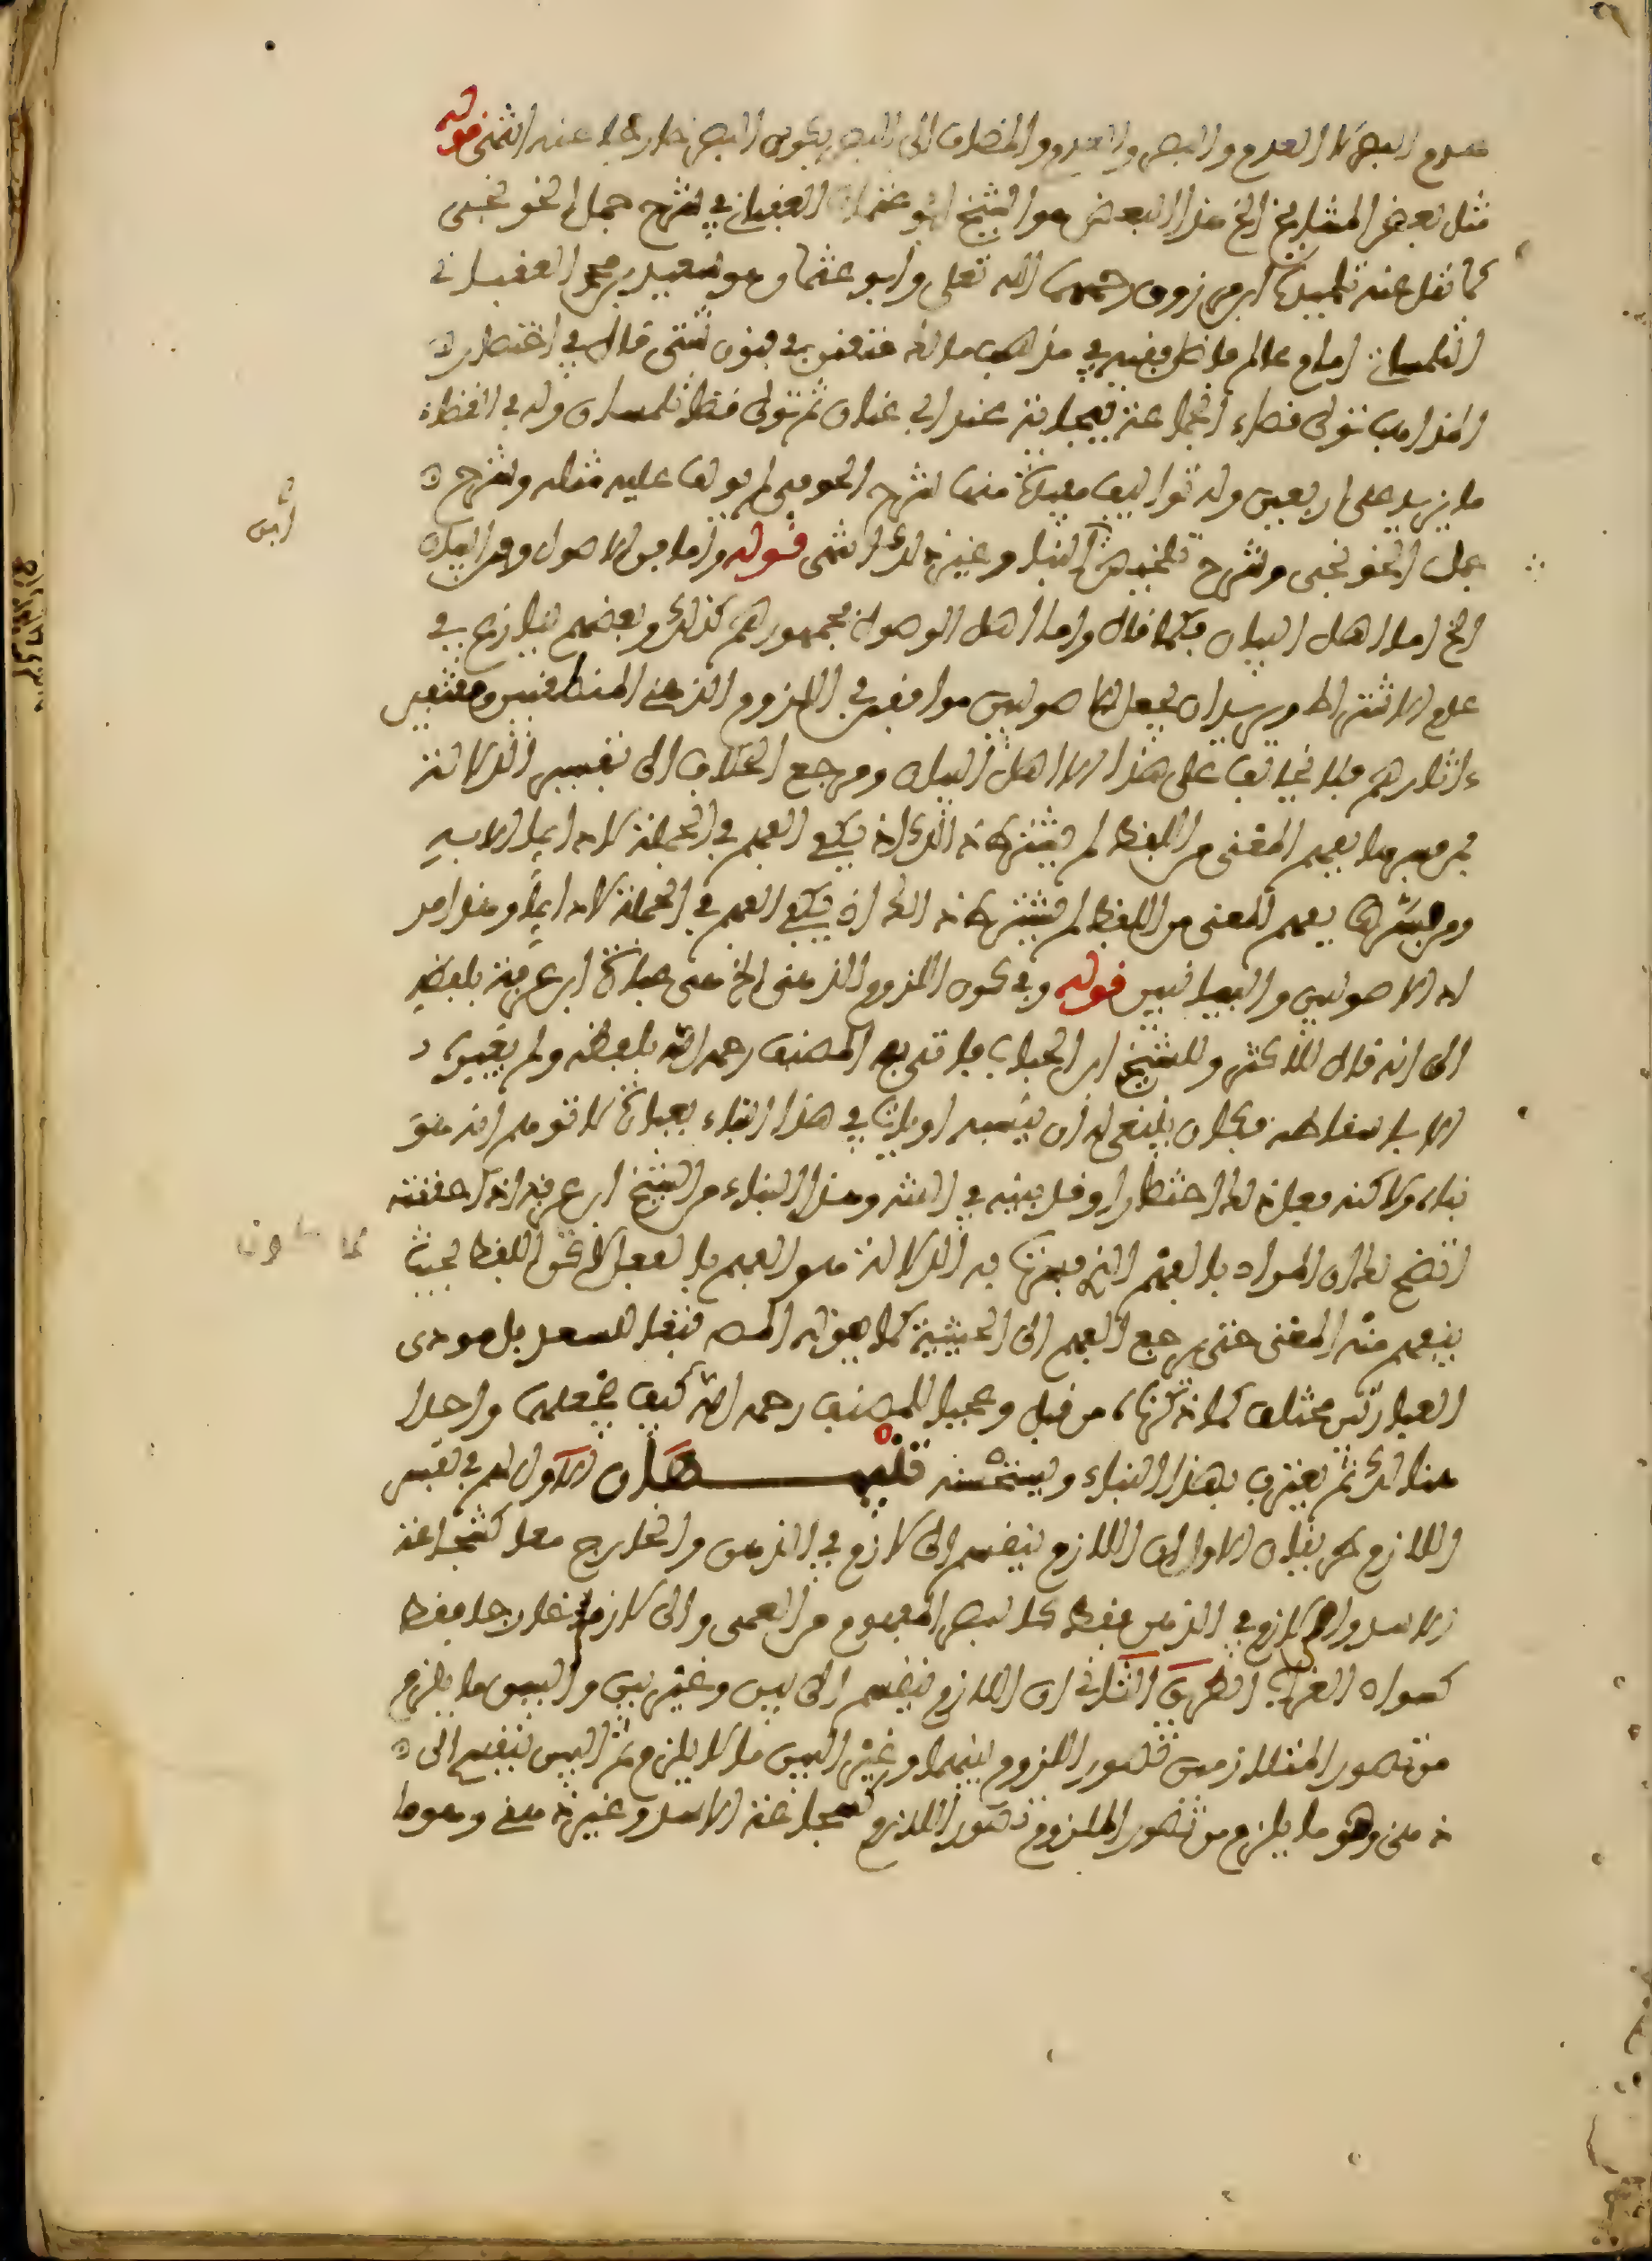 عدم البصر لا العدم والبصر والعدم والمضاف الى البصر يكون البصر خارجا عنه انتهى قوله
مثل بعض المشايخ الخ هذا البعض هو الشيخ ابو عثمان العقباني في شرح جمل الخونجي
كما نقل عنه تلميذه ابن مرزوق رحمهما الله تعلى وابو عثمان هو سعيد بن محمد العقباني
التلمساني امام عالم فاضل فقيه في مذهب مالك متفنن في فنون شتى قال في
المذاهب تولى قضاء الجماعة ببجاية عند ابي عنان ثم تولى قضاء تلمسان وله في القضاء
ما يزيد على اربعين وله تواليف مفيدة منها شرح الحوفي لم يولف عليه مثله وشرح
جمل الخونجي وشرح تلخيص ابن البنا وغير ذلك انتهى قوله واما بين الاصول واهل البيان
الخ اما اهل البيان فكما قال واما اهل الوصول فجمهورهم كذلك وبعضهم ينازع في
عدم الاشتراط ويريد ان يجعل الاصوليين موافقين في اللزوم الذهني المنطقيين ومقتفين
ءاثارهم فلا يخالف على هذا الا اهل البيان ومرجع الخلاف الى تفسير الدلالة
فمن فسرها بفهم المعنى من اللفظ لم يشترط ذلك اذ يكفي الفهم في الجملة
ومن فسرها بفهم المعنى من اللفظ لم يشترط ذلك اذ يكفي الفهم في الجملة لا دايما وهذا مراد
الاصوليين والبيانيين قوله وفي كون اللزوم الذهني الخ هي عبارة ابن عرفة بلفظه
الى انه قال للاكثر وللشيخ ابن الحباب فاتى به المصنف رحمه الله بلفظه ولم يغير
الا باسقاطه فكان ينبغي له ان ينسبه او ياتي في هذا البناء بعبارة لا توهم انه من
بنائه ولاكنه فعل ذلك اختصارا وقد بينه في الشرح وهذا البناء من الشيخ ابن عرفة اذا حققته
اتضح لك ان المراد بالفهم الذي فسرت به الدلالة هو الفهم بالفعل لا كون اللفظ بحيث
يفهم منه المعنى حتى يرجع الفهم الى الحيثية كما يقوله المصنف تبعا للسعد بل مودى
العبارتين مختلف كما ذكرناه من قبل وعجبا للمصنف رحمه الله كيف يجعلهما واحدا
هنالك ثم يعترف بهذا البناء ويستحسنه تنبيهان الاول لهم في تقسيم
اللازم طريقان الاول ان اللازم ينقسم الى لازم في الذهن والخارج معا كشجاعة
الاسد والى لازم في الذهن فقط كالبصر المفهوم من العمى والى لازم خارجا فقط
كسواد الغراب الطريق الثاني ان اللازم ينقسم الى بين وغير بين والبين ما يلزم
من تصور المتلازمين تصور اللزوم بينهما وغير البين ما لا يلزم ثم البين ينقسم الى
ذهني وهو ما يلزم من تصور الملزوم تصور اللازم كشجاعة الاسد وغير ذهني وهو ما